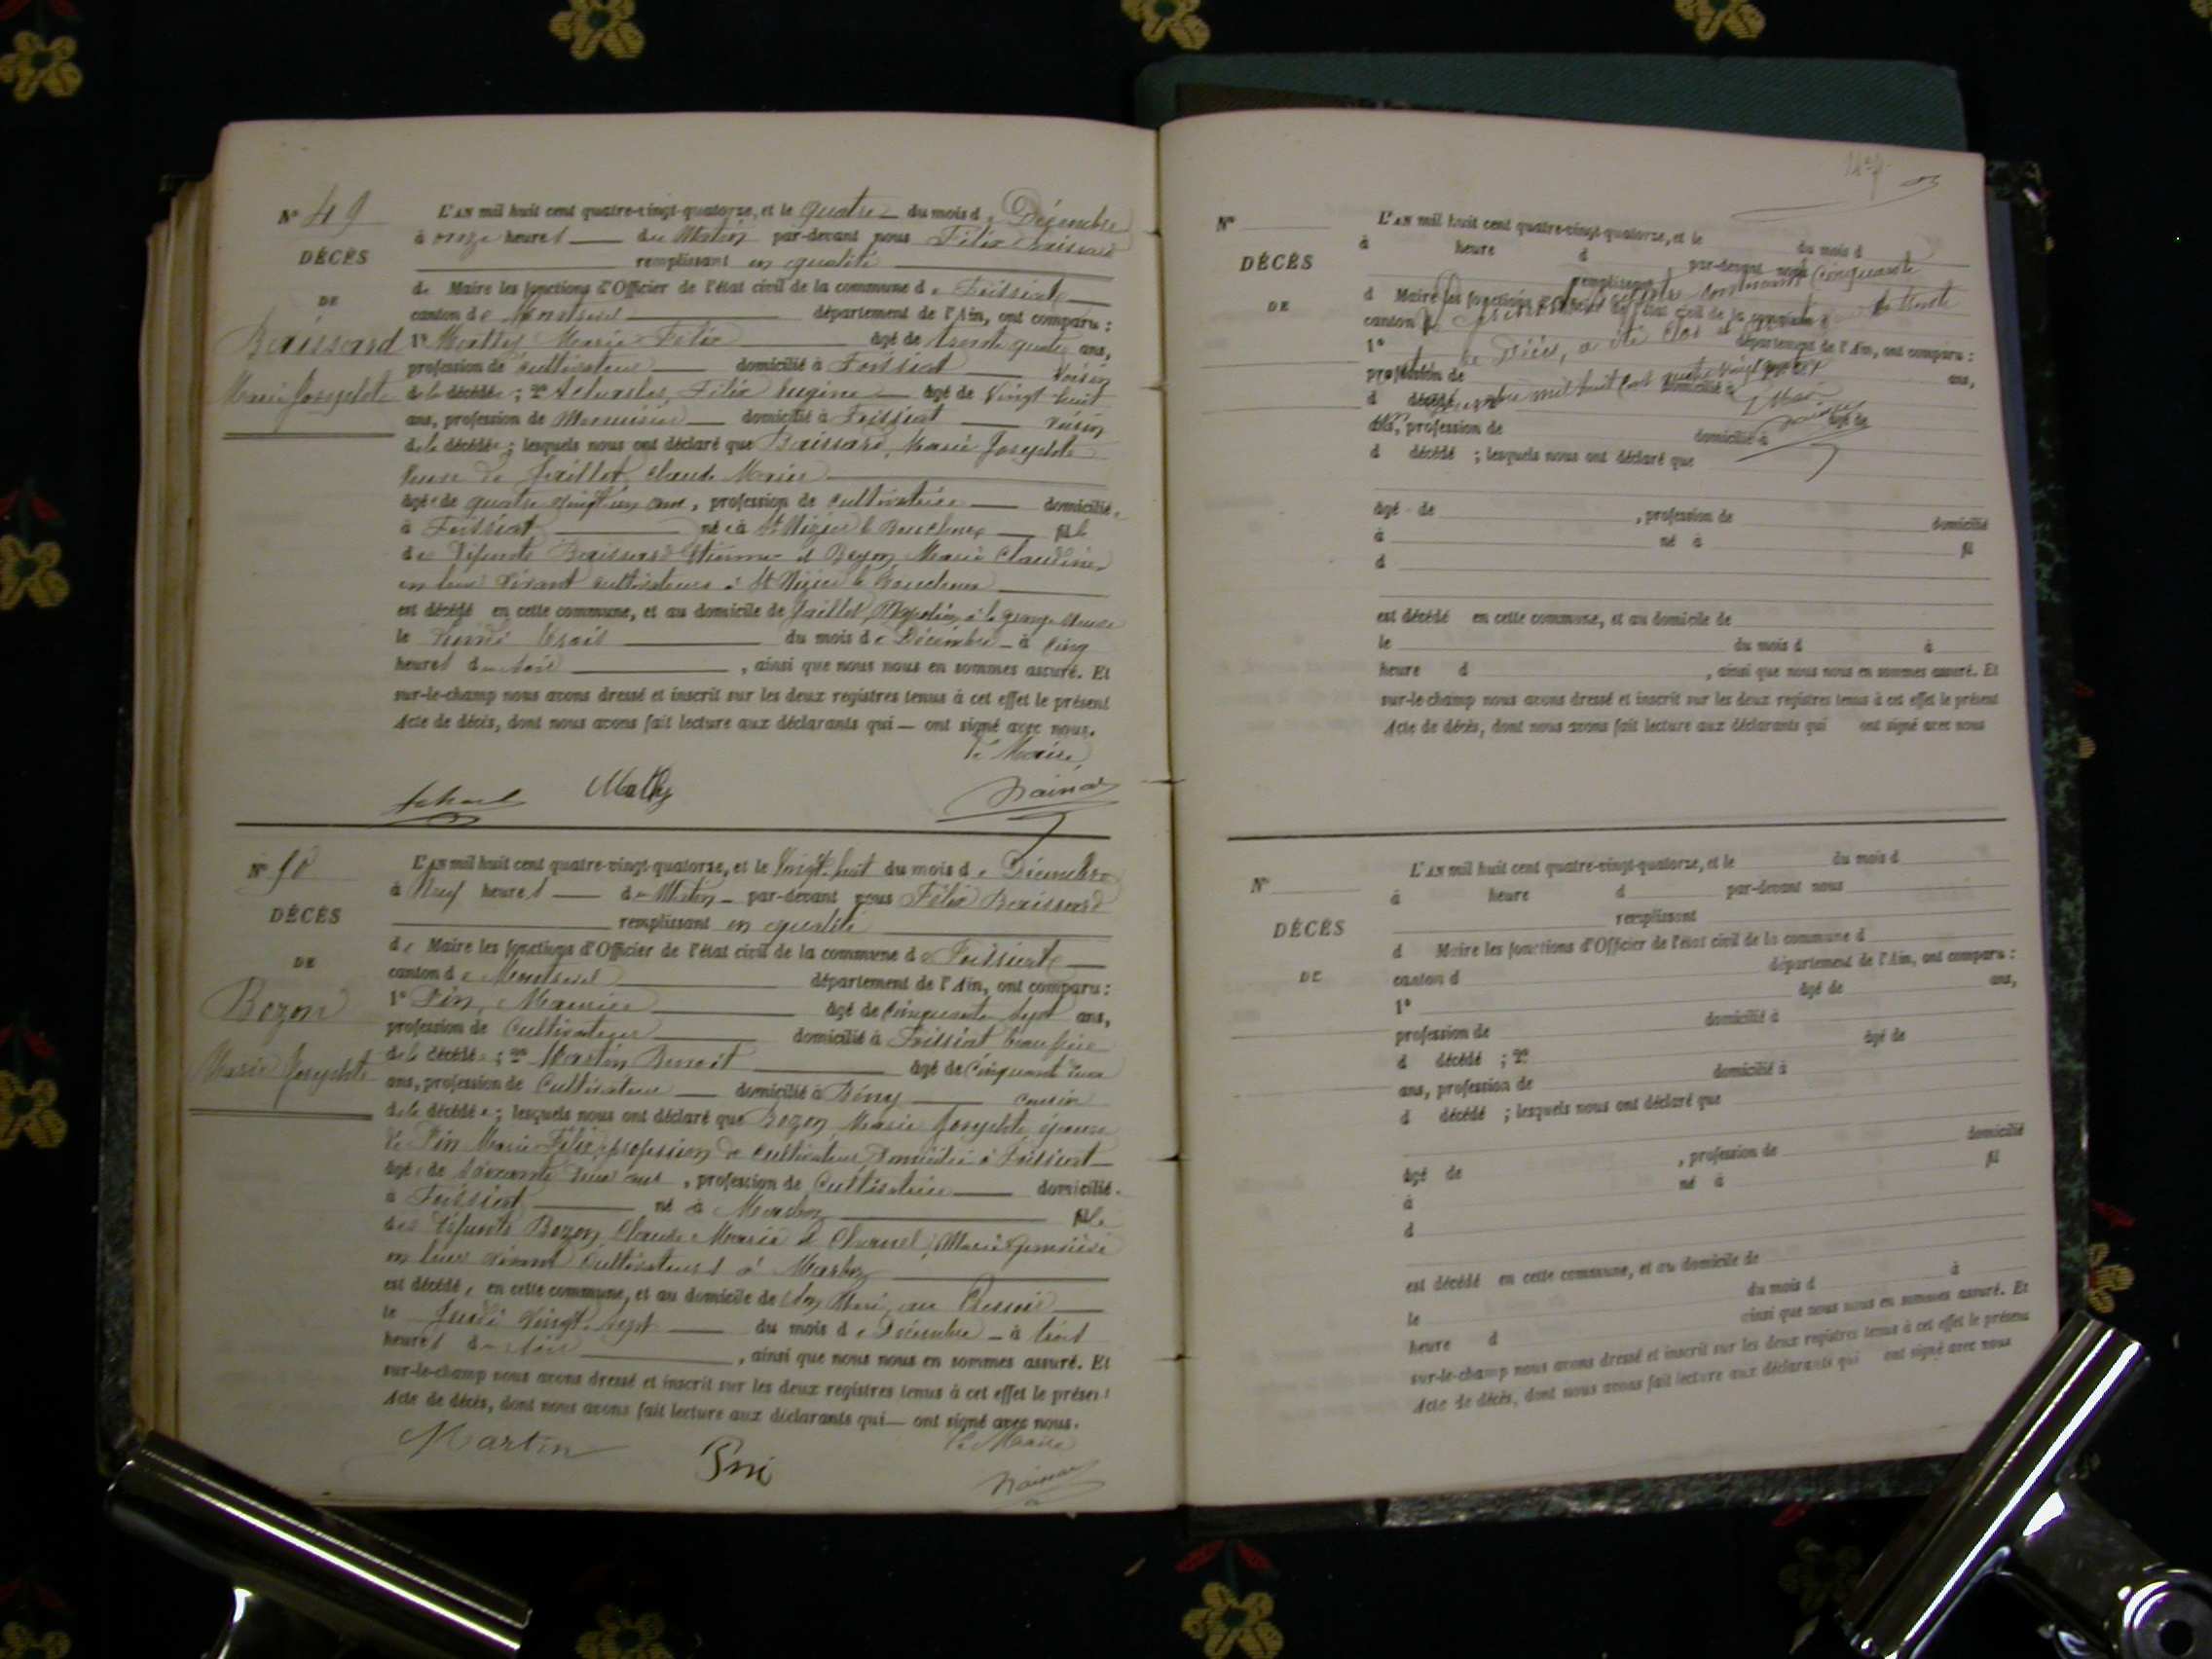 N° 49
DÉCÈS
DE
Baissard
Marie Josephte
L'AN mil huit cent quatre-vingt-quatorze, et le quatre du mois de Décembre
à onze heures du Matin par-devant nous Félix Baissard
remplissant en qualité
de Maire les fonctions d'Officier de l'état civil de la commune de Foissiat
canton de Montrevel département de l'Ain, ont comparu :
1° Mathy Marie Félix âgé de trente quatre ans,
profession de Cultivateur domicilié à Foissiat Voisin
de la décédée ; 2° Félix Eugène âgé de Vingt huit
ans, profession de Menuisier domicilié à Foissiat Voisin
de la décédée ; lesquels nous ont déclaré que Baissard, Marie Josephte
Veuve de Jaillet, Claude Marie
âgée de quatre vingt un ans, profession de cultivatrice domiciliée
à Foissiat née à St Nizier le Bouchoux fille
des défunts Baissard Etienne et Bozon Marie Claudine
en leur vivant cultivateurs à St Nizier le Bouchoux
est décédé en cette commune, et au domicile de Jaillet, à la grange
le Lundi trois du mois de Décembre à Cinq
heures du soir , ainsi que nous nous en sommes assuré. Et
sur-le-champ nous avons dressé et inscrit sur les deux registres tenus à cet effet le présent
Acte de décès, dont nous avons fait lecture aux déclarants qui — ont signé avec nous.
Le Maire,
Mathy
Baissard
N° 50
DÉCÈS
DE
Bozon
Marie Josephte
L'AN mil huit cent quatre-vingt-quatorze, et le Vingt huit du mois de Décembre
à Neuf heures du Matin par-devant nous Félix Baissard
remplissant en qualité
de Maire les fonctions d'Officier de l'état civil de la commune de Foissiat
canton de Montrevel département de l'Ain, ont comparu :
1° Pin, Maurice âgé de Cinquante sept ans,
profession de Cultivateur domicilié à Foissiat beau frère
de la décédée ; 2° Martin Benoit âgé de Cinquante deux
ans, profession de Cultivateur domicilié à Bény cousin
de la décédée ; lesquels nous ont déclaré que Bozon, Marie Josephte, épouse
de Pin Marie Félix, profession de cultivateur, domicilié à Foissiat
âgée de soixante deux ans , profession de Cultivatrice domiciliée
à Foissiat né à Marboz fille
des défunts Bozon, Claude Marie et Chanel, Marie Geneviève
en leur vivant Cultivateurs à Marboz
est décédée en cette commune, et au domicile de son Mari, au
le Jeudi Vingt sept du mois de Décembre à trois
heures du soir , ainsi que nous nous en sommes assuré. Et
sur-le-champ nous avons dressé et inscrit sur les deux registres tenus à cet effet le présent
Acte de décès, dont nous avons fait lecture aux déclarants qui — ont signé avec nous.
Le Maire
Martin
Baissard
N°
DÉCÈS
DE
L'AN mil huit cent quatre-vingt-quatorze, et le du mois d
à heure d par-devant nous cinquante
remplissant
d Maire les fonctions d'Officier de l'état civil de la commune d
canton d le trente
1° de Décès, a été clos département de l'Ain, ont comparu :
profession de mil huit cent quatre vingt domicilié à ans,
d décédé Le Maire
ans, profession de domicilié à âgé de
d décédé ; lesquels nous ont déclaré que
âgé de , profession de domicilié
à né à fil
d
est décédé en cette commune, et au domicile de
le du mois d à
heure d , ainsi que nous nous en sommes assuré. Et
sur-le-champ nous avons dressé et inscrit sur les deux registres tenus à cet effet le présent
Acte de décès, dont nous avons fait lecture aux déclarants qui ont signé avec nous
N°
DÉCÈS
DE
L'AN mil huit cent quatre-vingt-quatorze, et le du mois d
à heure d par-devant nous
remplissant
d Maire les fonctions d'Officier de l'état civil de la commune d
canton d département de l'Ain, ont comparu :
1° âgé de ans,
profession de domicilié à
d décédé ; 2° âgé de
ans, profession de domicilié à
d décédé ; lesquels nous ont déclaré que
âgé de , profession de domicilié
à né à fil
d
est décédé en cette commune, et au domicile de
le du mois d à
heure d ainsi que nous nous en sommes assuré. Et
sur-le-champ nous avons dressé et inscrit sur les deux registres tenus à cet effet le présent
Acte de décès, dont nous avons fait lecture aux déclarants qui ont signé avec nous